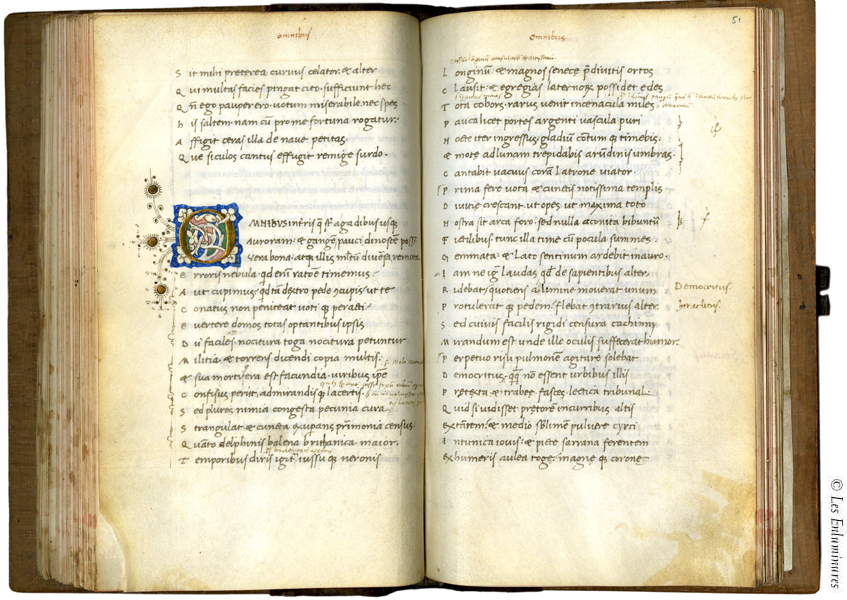 omnibus
S it mihi preterea curuus celator. & alter
Q ui multas facies pingat cito. sufficiunt hec
Q n̄ ego pauper ero. uotum miserabile. nec spes
h is saltem. nam cū pro me fortuna rogatur.
A ffigit ceras illa de naue petitas.
Q ue siculos cantus effugit remige surdo.
OMNIBVS in terris q̄ sūt a gadibus usq
Auroram. & gangē pauci dinoscē poss
Vera bona. atq illis mltū diuersa remota
E rroris nebula. qd enī ratōe timemus.
A ut cupimus. qd tā dextro pede ɔcupis. ut te
C onatus non peniteat uoti q peracti.
E uertere domos totas optantibus ipsis
D ii faciles. nocitura toga nocitura petuntur
M ilitia. & torrens dicendi copia multis.
& sua mortifera est facundia. uiribus ipse
C onfisus periit. admirandisq lacertis.
S ed plures nimia congesta pecunia cura
S trangulat. & cuncta exupans primonia census
Q uāto delphinis balena brithanica maior.
T emporibus diris igit. iussu q neronis
omnibus
51
L onginū. & magnos senece p̄diuitis ortos
C lausit. & egregias laternorȝ possidet edes
T ota cohors. rarus uenit in cenacula miles
P auca licet portes argenti uascula puri
N octe iter ingressus. gladiū cōtum q timebis.
& mote ad lunam trepidabis arūdinis umbras.
C antabit uacuus corā latrone uiator.
P rima fere uota & cunctis notissima templis
D iuitie crescant. ut opes. ut maxima toto
N ostra sit arca foro. sed nulla aconita bibuntū
F ictilibus. tunc illa time cū pocula sumes
G emmata. & lato sentinum ardebit in auro.
I am ne ig laudas qd de sapientibus alter
R idebat. quotiens a limine mouerat unum
Democritus.
P rotulerat q pedem. flebat ɔtrarius alter
Heraclitus.
S ed cuiuis facilis rigidi censura cachinni
M irandum est unde ille oculis suffecerat humor.
P erpetuo risu pulmonē agitare solebat
D emocritus. qq̄ nō essent urbibus illis
P retexta & trabee fasces lectica tribunal.
Q uid si uidisset pretorē in curribus altis
Extātem. & medio sblimē puluere circi
I n tunica iouis. & picte sarrana ferentem
Ex humeris aulea toge. magne q corone
© Les Enluminures